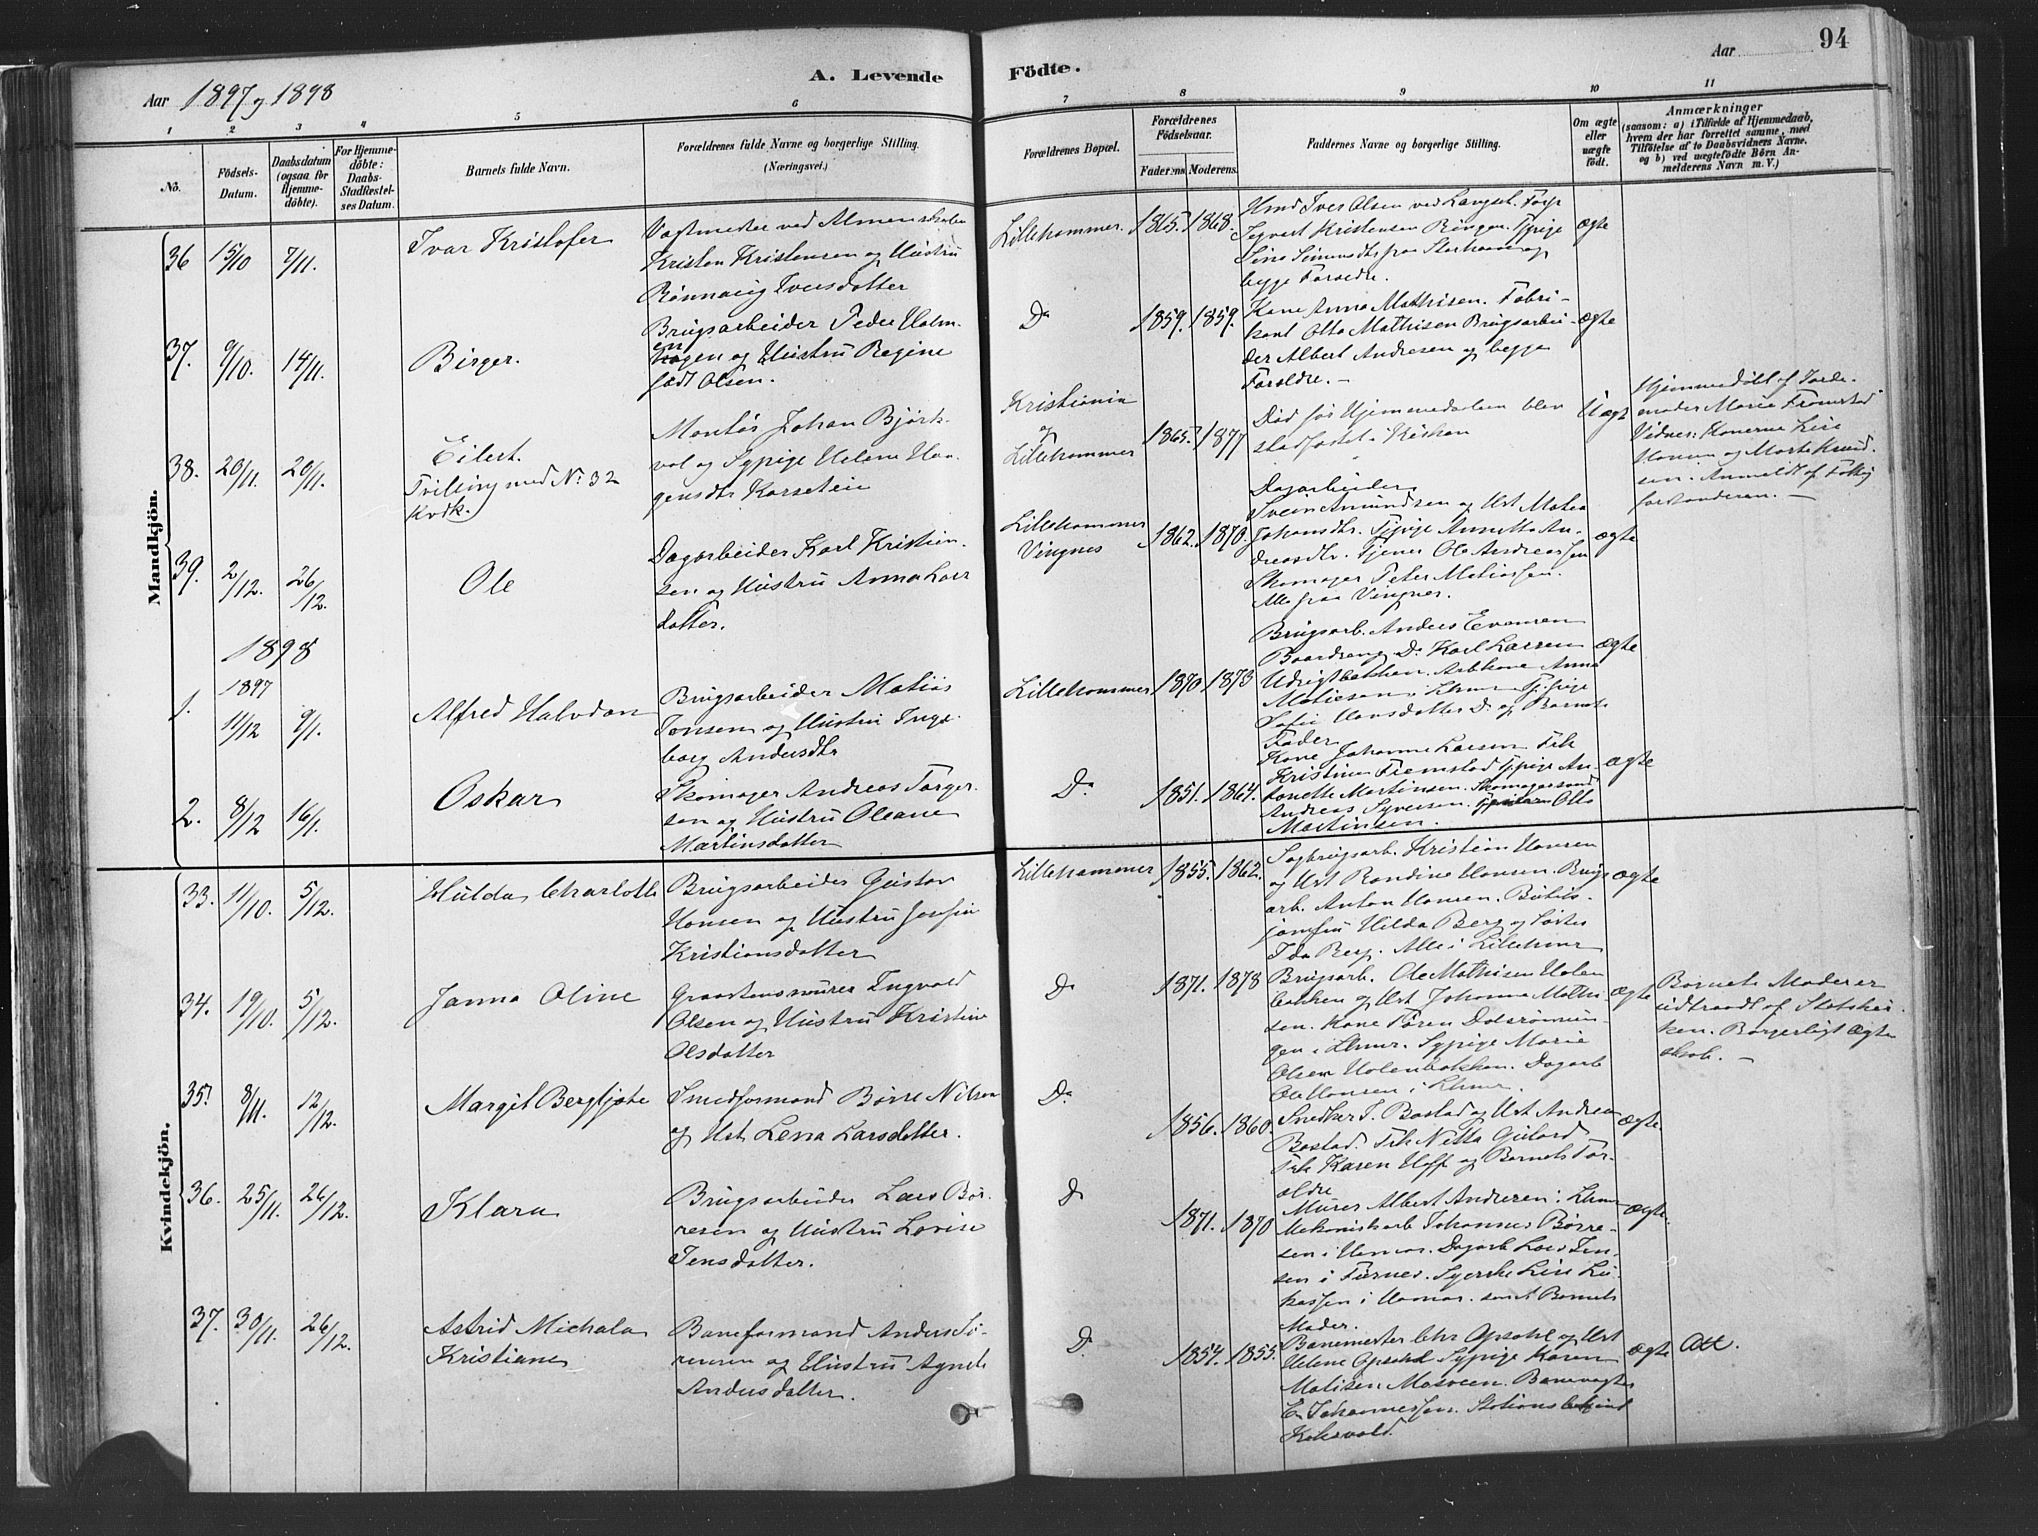 94
Aar 1897 og 1898
A. Levende
Födte.
Aar
1 2 3 4 5 6
7 8 9 10 11
No.
Födsels-
Datum.
Daabsdatum
(ogsaa for
Hjemme-
döbte).
For Hjemme-
döbte:
Daabs-
Stadfæstel-
ses Datum.
Barnets fulde Navn.
Forældrenes fulde Navne og borgerlige Stilling.
(Næringsvei.)
Forældrenes Bopæl.
Forældrenes
Födselsaar.
Faderens. Moderens.
Faddernes Navne og borgerlige Stilling.
Om ægte
eller
uægte
födt.
Anmærkninger
(saasom: a) i Tilfælde af Hjemmedaab,
hvem der har forrettet samme, med
Tilföielse af to Daabsvidners Navne,
og b) ved uægtefödte Börn An-
melderens Navn m. V.)
Mandkjön.
36 15/10 7/11.
Ivar Kristofer
Vagtmester ved
Kristen Kristensen og Hustru
Rønnaug Iversdatter
Lillehammer. 1865. 1868.
Iver Olsen ved
Kristensen
begge Forældre.
ægte
37. 9/10. 14/11.
Birger.
Brugsarbeider Peder Holm-
en
og Hustru Regine
født Olsen.
Do 1859. 1859.
Kone Anna Mathisen. Fabri-
kant Otto Mathisen Brugsarbei-
der Albert Andresen og begge
Forældre. -
ægte
38. 20/11. 20/11.
Eilert.
Tvilling med No 32
Kvdk.
Montør Johan Bjørk-
vol og Sypige Helene Haa-
gensdtr
Kristiania
og
Lillehammer
1865. 1897
Død før Hjemmedaaben blev
stadfæstet i Kirken
Uægte
Hjemmedøbt af Jorde-
moder Marie Fremstad
Vidner: Konerne Lise
Hansen og
Anmeldt af
-
39. 2/12. 26/12.
Ole
Dagarbeider Karl Kristian-
sen og Hustru Anna Lars
datter.
Lillehammer
Vingnes
1862. 1870.
Dagarbeider
Svein Amundsen og Hst Matea
Johansdtr. Sypige Annette An-
dreasdtr. Tjener Ole Andreassen
Skomager Peter Matiassen.
Alle fra Vingnes.
ægte
1898
1. 1897
11/12 9/1.
Alfred Halvdan
Brugsarbeider Matias
Jonsen og Hustru Inge-
borg Andersdtr
Lillehammer 1870 1873
Brugsarb. Anders Evensen
Do Karl Larsen
Arbkone Anna
Matiesen i Lhmr Sypige
Sofie Hansdatter Do og Barnets
Fader
ægte
2. 8/12 16/1.
Oskar
Skomager Andreas Torger-
sen og Hustru Oleane
Martinsdatter
Do. 1851. 1864.
Kone Johanne Larsen Frk
Kristine Fremstad Sypige An-
tonette Martinsen. Skomagersvend
Andreas Syversen. Otto
Martinsen.
ægte
Kvindekjön.
33. 11/10. 5/12.
Hulda Charlotte
Brugsarbeider Gustav
Hansen og Hustru Josefine
Kristiansdatter
Lillehammer 1855. 1862.
Sagbrugsarb. Kristian Hansen
og Hst Randine Hansen. Brugs
arb. Anton Hansen. Butiks-
jomfru Hilda Berg og
Ida Berg. Alle i Lillehmr
ægte
34. 19/10. 5/12.
Janna Oline
Graastensmurer Ingvald
Olsen og Hustru Kristine
Olsdatter
Do 1871. 1878
Brugsarb. Ole Mathisen Holen
bakken og Hst Johanna Mathi-
sen. Kone
i Lhmr. Sypige Marie
Olsen Holenbakken. Dagarb
Ole Hansen i Lhmr.
ægte
Barnets Moder er
udtraadt af Statskir-
ken. Borgerligt Ægte-
skab. -
35. 8/11. 12/12.
Margit Bergljote
Smedformand Børre Nilsen
og Hst Lena Larsdatter.
Do. 1856. 1860.
Snedker J. Bastad og Hst Andrea
Bastad. Frk Netta
Frk Karen Hoff og Barnets For-
ældre
ægte.
36. 25/11. 26/12.
Klara
Brugsarbeider Lars Bør-
resen og Hustru Lovise
Jensdatter.
Do 1871. 1870
Murer Albert Andresen i Lhmr
Mekaniskarb Johannes Børre-
sen i Hamar. Dagarb Lars Jen-
sen i Furnes. Syerske Lise Lu-
kassen i Hamar. samt Barnets
Moder.
ægte.
37. 30/11. 26/12.
Astrid Michala
Kristiane
Baneformand Anders Sø-
rensen og Hustru Agnete
Andersdatter.
Do. 1854. 1855.
Banemester Chr Opsahl og Hst
Helene Opsahl Sypige Karen
Matisen Mosveen. Banevogter
E. Johannessen. Stationsbetjent
ægte
Att.